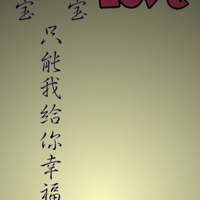 宝
宝
只能我给你幸福
LOVE